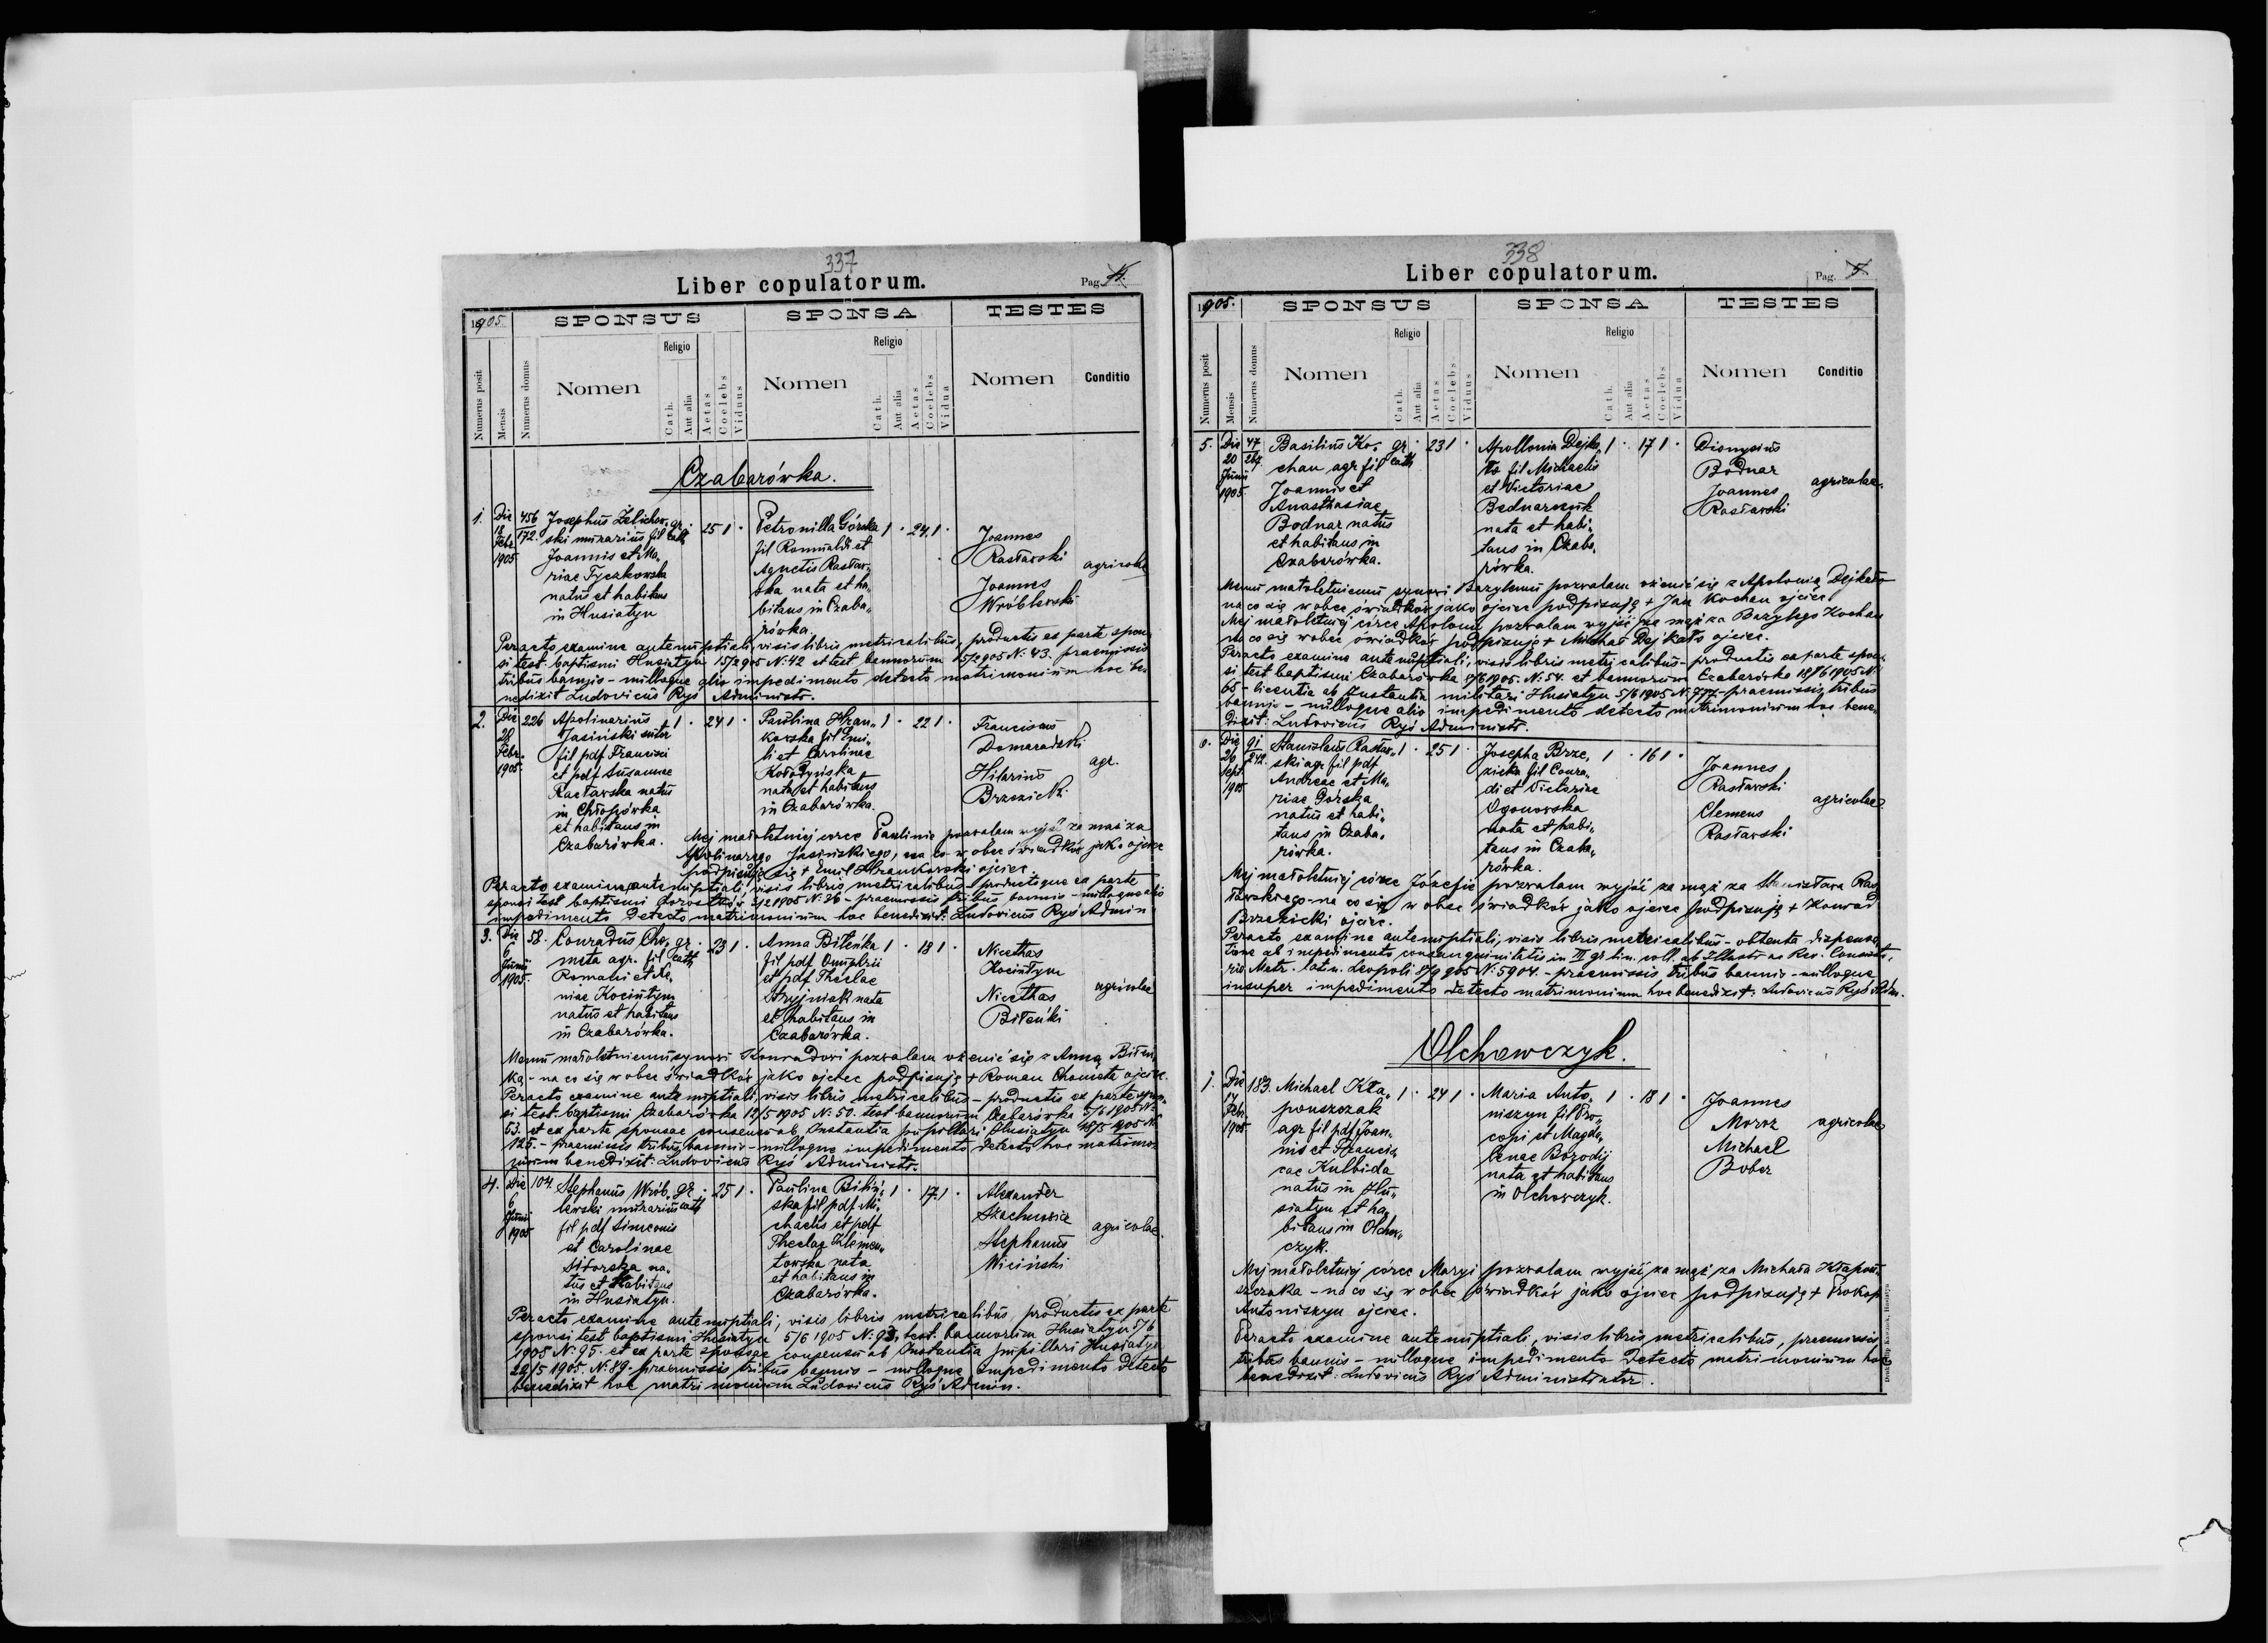 337
Liber copulatorum.
Pag. 4.
1905.
SPONSUS
SPONSA
TESTES
Numerus posit
Mensis
Numerus domus
Nomen
Religio
Cath.
Aut alia
Aetas
Coelebs
Viduus
Nomen
Religio
Cath.
Aut alia
Aetas
Coelebs
Vidua
Nomen
Conditio
Czabarówka.
1. Die 18 Febr. 1905
456/172.
Josephus Zelichow„
ski murarius fil
Joannis et Ma„
riae Tyczkowska
natus et habitans
in Husiatyn
gr. cath
25 1 ·
Petronilla Górska
fil Romualdi et
Agnetis Rasław„
ska nata et ha„
bitans in Czaba„
rówka.
1 · 24 1 ·
Joannes
Rasławski
Joannes
Wróblewski
agricolae
Peracto examine antenuptiali, visis libris metricalibus, productis ex parte spon„
si test. baptismi Husiatyn 15/2 905 N: 42 et test bannorum 15/2 905 N: 43. praemissis
tribus bannis – nulloque alio impedimento detecto matrimonium hoc be„
nedixit Ludovicus Ryś Administr.
2. Die 28 Febr. 1905.
226
Apolinarius
Jasiński sutor
fil pdf Francisci
et pdf Susannae
Racławska natus
in
et habitans in
Czabarówka.
1 · 24 1 ·
Paulina Hran„
kowska fil Emi„
li et Carolinae
Kołodyńska
nata et habitans
in Czabarówka.
1 · 22 1 ·
Franciscus
Domaradzki
Hilarius
Brzezicki
agr.
Mej małoletniej córce Paulinie pozwalam wyjść za mąż za
Apolinarego Jasińskiego, na co w obec świadków jako ojciec
podpisuję się + Emil Hrankowski ojciec.
Peracto examine antenuptiali, visis libris metricalibus productisque ex parte
sponsi test baptismi 3/2 1905 N: 36 – praemissis tribus bannis – nulloque alio
impedimento detecto matrimonium hoc benedixit: Ludovicus Ryś Admin
3. Die 6 Junii 1905.
58.
Conradus Cho„
meta agr. fil
Romani et Xe„
niae Kociutym
natus et habitans
in Czabarówka.
gr. cath
23 1 ·
Anna Biłeńka
fil pdf Onuphrii
et pdf Theclae
Stryjniak nata
et habitans in
Czabarówka.
1 · 18 1 ·
Nicethas
Kociutym
Nicethas
Biłeńki
agricolae
Memu małoletniemu synowi Konradowi pozwalam ożenić się z Anną Biłeń„
ką – na co się w obec świadków jako ojciec podpisuję + Roman Chometa ojciec.
Peracto examine ante nuptiali, visis libris metricalibus – productis ex parte spon„
si test. baptismi Czabarówka 12/5 1905 N: 50. test bannorum Czabarówka 5/6 1905 N:
53. et ex parte sponsae consensu ab Instantia pupillari Husiatyn 18/5 905 N:
125. – praemissis tribus bannis – nulloque impedimento detecto hoc matrimo„
nium benedixit: Ludovicus Ryś Administr.
4. Die 6 Junii 1905
104.
Stephanus Wrób„
lewski murarius
fil pdf Simeonis
et Carolinae
Sikorska na„
tus et habitans
in Husiatyn.
gr. cath
25 1 ·
Paulina Biliń„
ska fil pdf Mi„
chaelis et pdf
Theclae Klemen„
towska nata
et habitans in
Czabarówka.
1 · 17 1 ·
Alexander
Szachnowicz
Stephanus
Wiciński
agricolae.
Peracto examine antenuptiali, visis libris metricalibus productis ex parte
sponsi test baptismi Husiatyn 5/6 1905 N: 93, test. bannorum Husiatyn 5/6
1905 N: 95. et ex parte sponsae consensu ab Instantia pupillari Husiatyn
22/5 1905. N: 89. praemissis tribus bannis – nulloque impedimento detecto
benedixit hoc matrimonium Ludovicus Ryś Admin.
338
Liber copulatorum.
Pag. 5
1905.
SPONSUS
SPONSA
TESTES
Numerus posit
Mensis
Numerus domus
Nomen
Religio
Cath.
Aut alia
Aetas
Coelebs
Viduus
Nomen
Religio
Cath.
Aut alia
Aetas
Coelebs
Vidua
Nomen
Conditio
5. Die 20 Junii 1905.
47/267
Basilius Ko„
chan agr. fil
Joannis et
Anasthasiae
Bodnar natus
et habitans in
Czabarówka.
gr. cath
23 1 ·
Apollonia Dejka„
ło fil Michaelis
et Victoriae
Bednarczuk
nata et habi„
tans in Czaba„
rówka.
1 · 17 1 ·
Dionysius
Bodnar
Joannes
Rasławski
agricolae.
Memu małoletniemu synowi Bazylemu pozwalam ożenić się z Apolonią Dejkało
na co się w obec świadków jako ojciec podpisuję + Jan Kochan ojciec.
Mej małoletniej córce Apolonii pozwalam wyjść za mąż za Bazylego Kochan
na co się w obec świadków podpisuję + Michał Dejkało ojciec.
Peracto examine antenuptiali, visis libris metricalibus – productis ex parte spon„
si test baptismi Czabarówka 1905. N: 54. et bannorum Czabarówka 18/6 1905 N:
65 – licentia ab Instantia militari Husiatyn 5/6 1905 N: 777 – praemissis tribus
bannis – nulloque alio impedimento detecto matrimonium hoc bene„
dixit: Ludovicus Ryś Administr.
6. Die 26 Sept. 1905
91/242.
Stanislaus Rasław„
ski agr. fil pdf
Andreae et Ma„
riae Górska
natus et habi„
tans in Czaba„
rówka.
1 · 25 1 ·
Josepha Brze„
zicka fil Conra„
di et Victoriae
Ogonowska
nata et habi„
tans in Czaba„
rówka.
1 · 16 1 ·
Joannes
Rasławski
Clemens
Rasławski
agricolae
Mej małoletniej córce Józefie pozwalam wyjść za mąż za Stanisława Ras„
ławskiego – na co się w obec świadków jako ojciec podpisuję + Konrad
Brzezicki ojciec.
Peracto examine antenuptiali, visis libris metricalibus – obtenta dispensa„
tione ab impedimento consanguinitatis in III gr. lin. coll. ab Illustr. ac Rev. Consisto„
rio Metr. latin. Leopoli 8/9 905 N: 5904. – praemissis tribus bannis – nulloque
insuper impedimento detecto matrimonium hoc benedixit: Ludovicus Ryś Adm.
Olchowczyk.
1. Die 14 Febr. 1905
183.
Michael Kła„
pouszczak
agr. fil pdf Joan„
nis et Francis„
cae Kulbida
natus in Hu„
siatyn et ha„
bitans in Olchow„
czyk.
1 · 24 1 ·
Maria Anto„
niszyn fil Pro„
copi et Magda„
lenae Borodij
nata et habitans
in Olchowczyk.
1 · 18 1 ·
Joannes
Moroz
Michael
Bober
agricolae
Mej małoletniej córce Maryi pozwalam wyjść za mąż za Michała Kłapou„
szczaka – na co się w obec świadków jako ojciec podpisuję + Prokop
Antoniszyn ojciec.
Peracto examine antenuptiali, visis libris metricalibus, praemissis
tribus bannis – nulloque impedimento detecto matrimonium hoc
benedixit: Ludovicus Ryś Administrator.